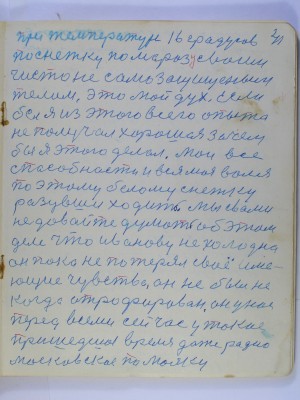 при температуре 16 градусов
по снежку по марозу своим
чисто не само защищеным
телом, это мой дух. Если
бы я из этого всего опыта
не получал хорошая зачем
бы я этого делал. Мои все
способности и вся моя воля
по этому белому снежку
разувши ходить мы с вами
не довайте думать об этом
деле что иванову не холодна
он пока не потерял своё име-
ющие чувства, он не был не
когда строфирован, он у нас
перед всеми сейчас у такое
пришедшая время даже радио
московское помошку